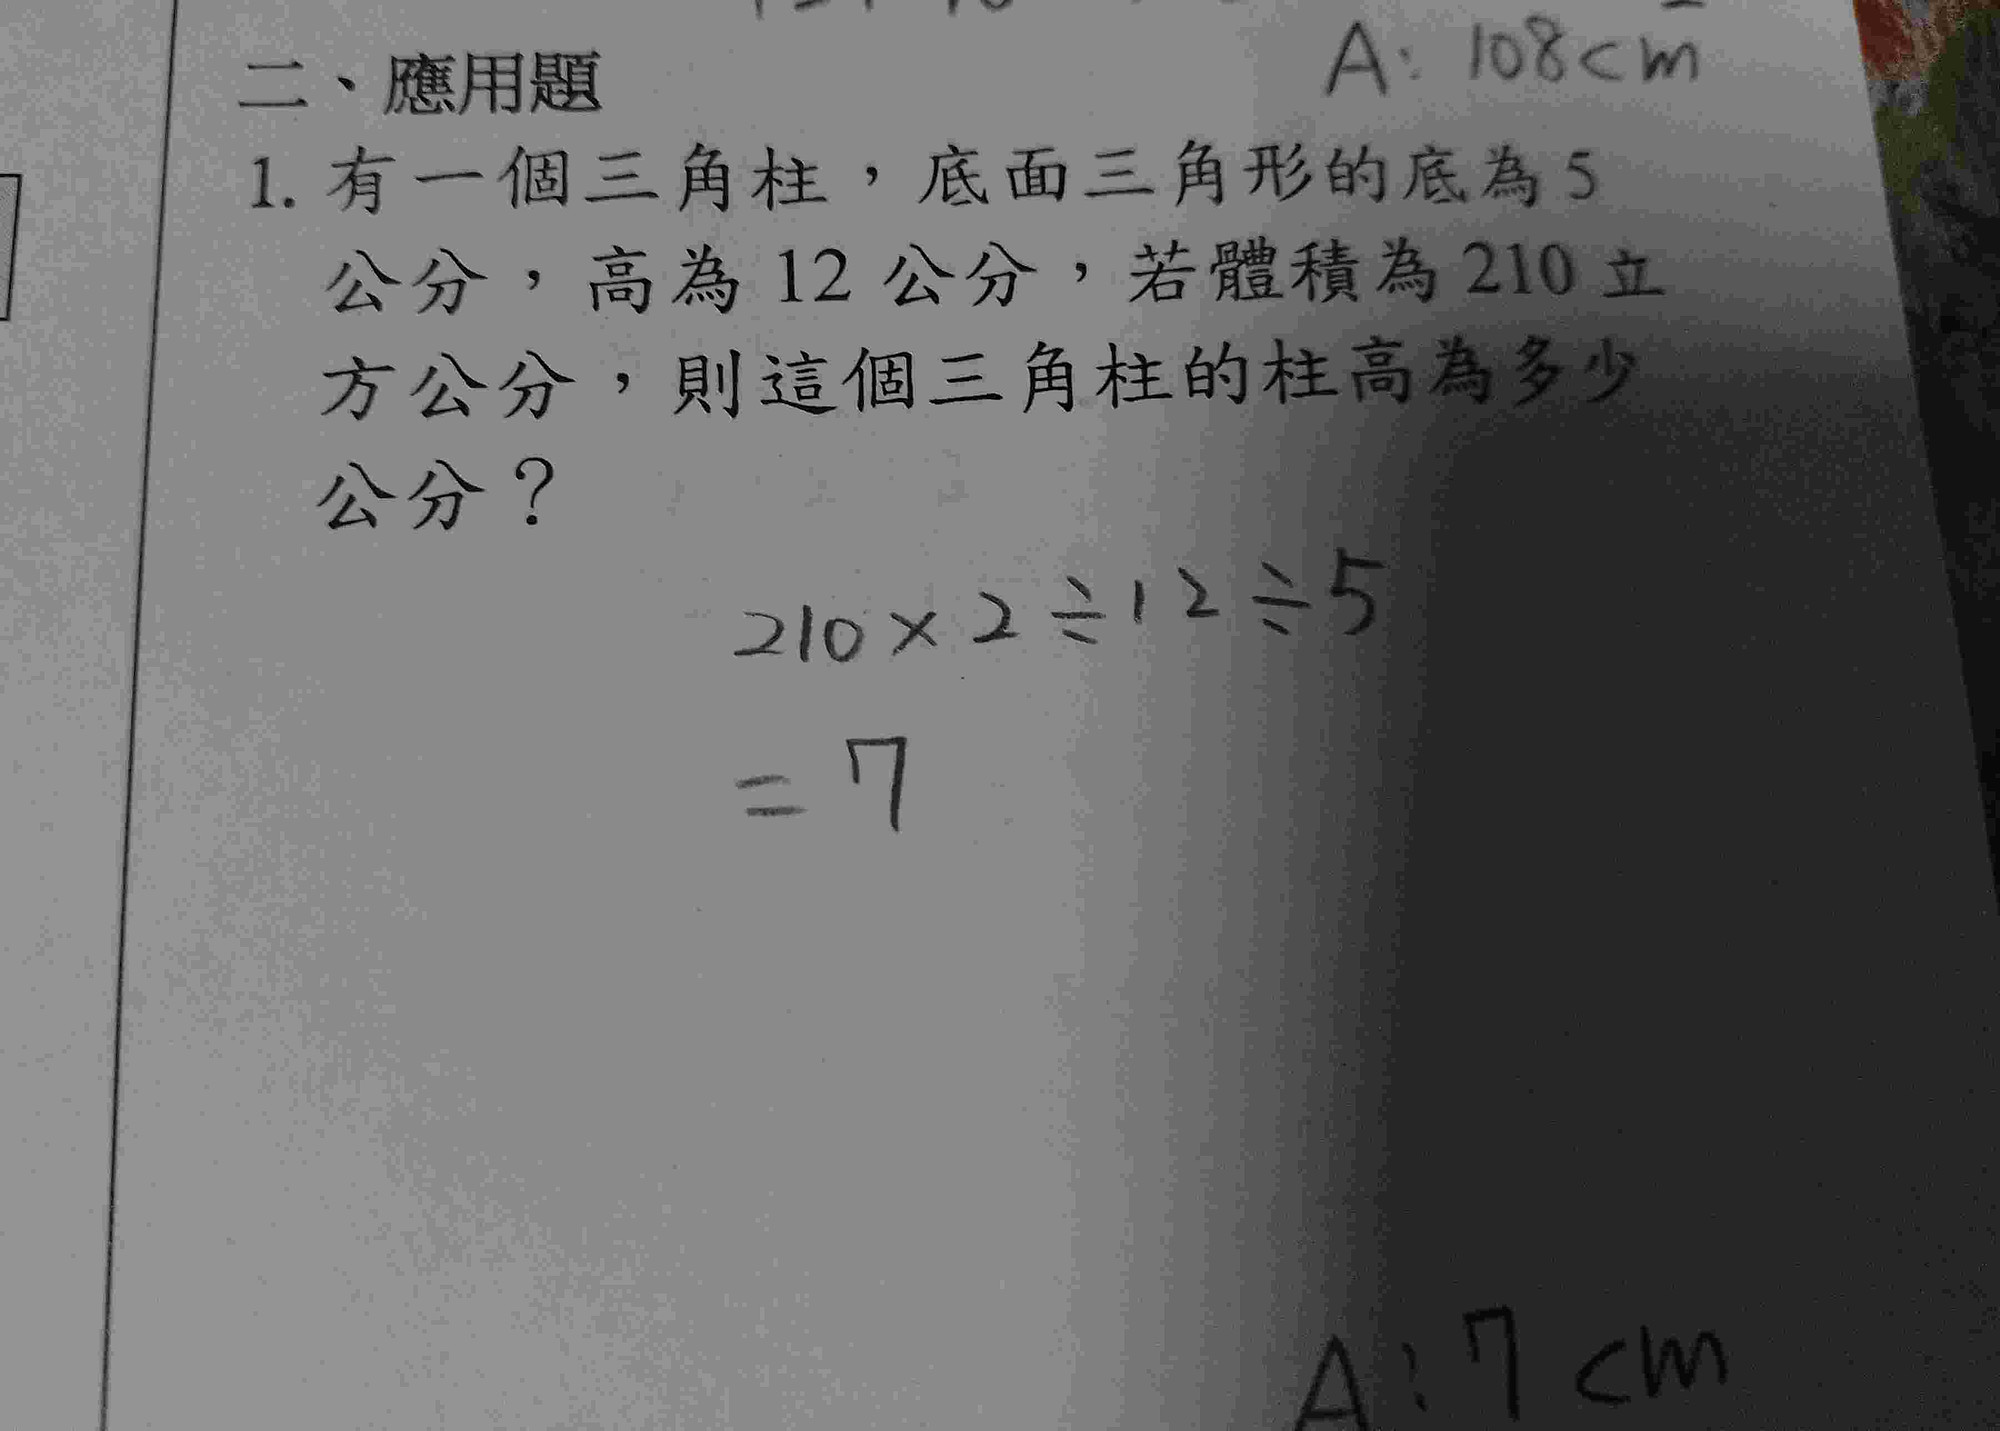 A: 108cm
二、應用題
1. 有一個三角柱，底面三角形的底為 5
公分，高為 12 公分，若體積為 210 立
方公分，則這個三角柱的柱高為多少
公分？
210 × 2 ÷ 12 ÷ 5
= 7
A: 7 cm